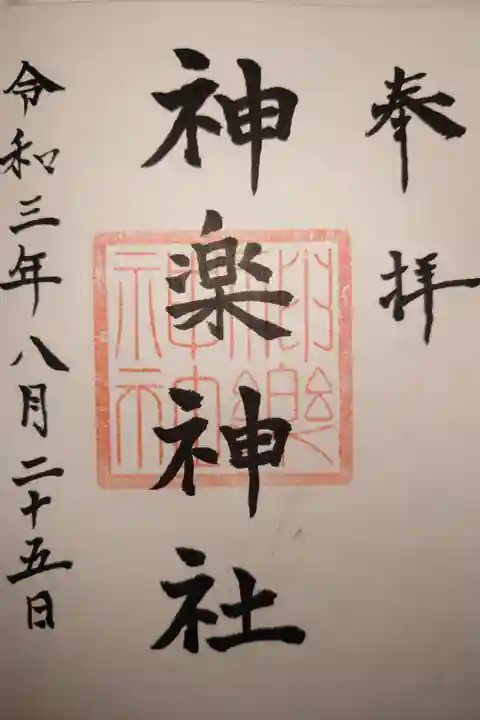 奉拝
神楽神社
神楽神社
令和三年八月二十五日